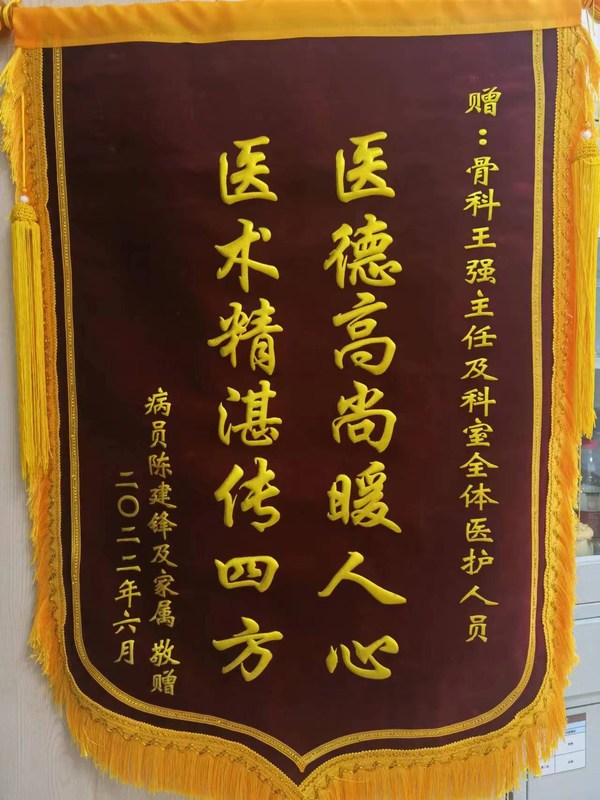 赠：骨科王强主任及科室全体医护人员
医德高尚暖人心
医术精湛传四方
病员陈建锋及家属 敬赠
二〇二二年六月